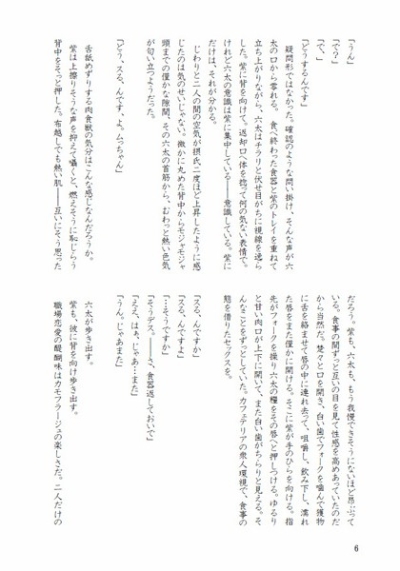 「うん」
「で？」
「で、」
「どうするんです」
　疑問形ではなかった。確認のような問い掛け、そんな声が六
太の口から零れる。食べ終わった食器と紫のトレイを重ねて
立ち上がりながら、六太はチラリと伏せ目がちに視線を逸ら
した。紫に背を向けて。返却口へ体を捻って何の気ない表情で。
けれど六太の意識は紫に集中している――意識している。紫に
だけは、それが分かる。
　じわりと二人の間の空気が摂氏二度ほど上昇したように感
じたのは気のせいじゃない。微かに丸めた背中からモジャモジャ
頭までの僅かな隙間、その六太の首筋から、むわっと熱い色気
が匂い立つようだった。
「どう、スる、んです、よ。ムっちゃん」
　舌舐めずりする肉食獣の気分はこんな感じなんだろうか。
　紫は上擦りそうな声を抑えて囁くと、燃えそうに恥じらう
背中をそっと押した。布越しでも熱い肌――互いにそう思った
だろう。紫も、六太も、もう我慢できそうにないほど昂ぶって
いる。食事の間ずっと互いの目を見て性感を高めあっていたのだ
から当然だ。楚々と口を開き、白い歯でフォークを噛んで獲物
に舌を絡ませて唇の中に連れ去って、咀嚼し、飲み下し、濡れ
た唇をまた僅かに開ける。そこに紫が手のひらを向ける。指
先がフォークを操り六太の糧をその唇へと押しつける。ゆるり
と甘い肉口が上下に開いて、また白い歯がちらりと見える。そ
んなことをずっとしていた。カフェテリアの衆人環視で、食事の
態を借りたセックスを。
「スる、んですか」
「スる、んですよ」
「…そうですか」
「そうデス。――さ、食器返しておいで」
「ええ、はぁ、じゃあ…また」
「うん。じゃあまた」
　六太が歩き出す。
　紫も、彼に背を向け歩き出す。
　職場恋愛の醍醐味はカモフラージュの楽しさだ。二人だけの
6